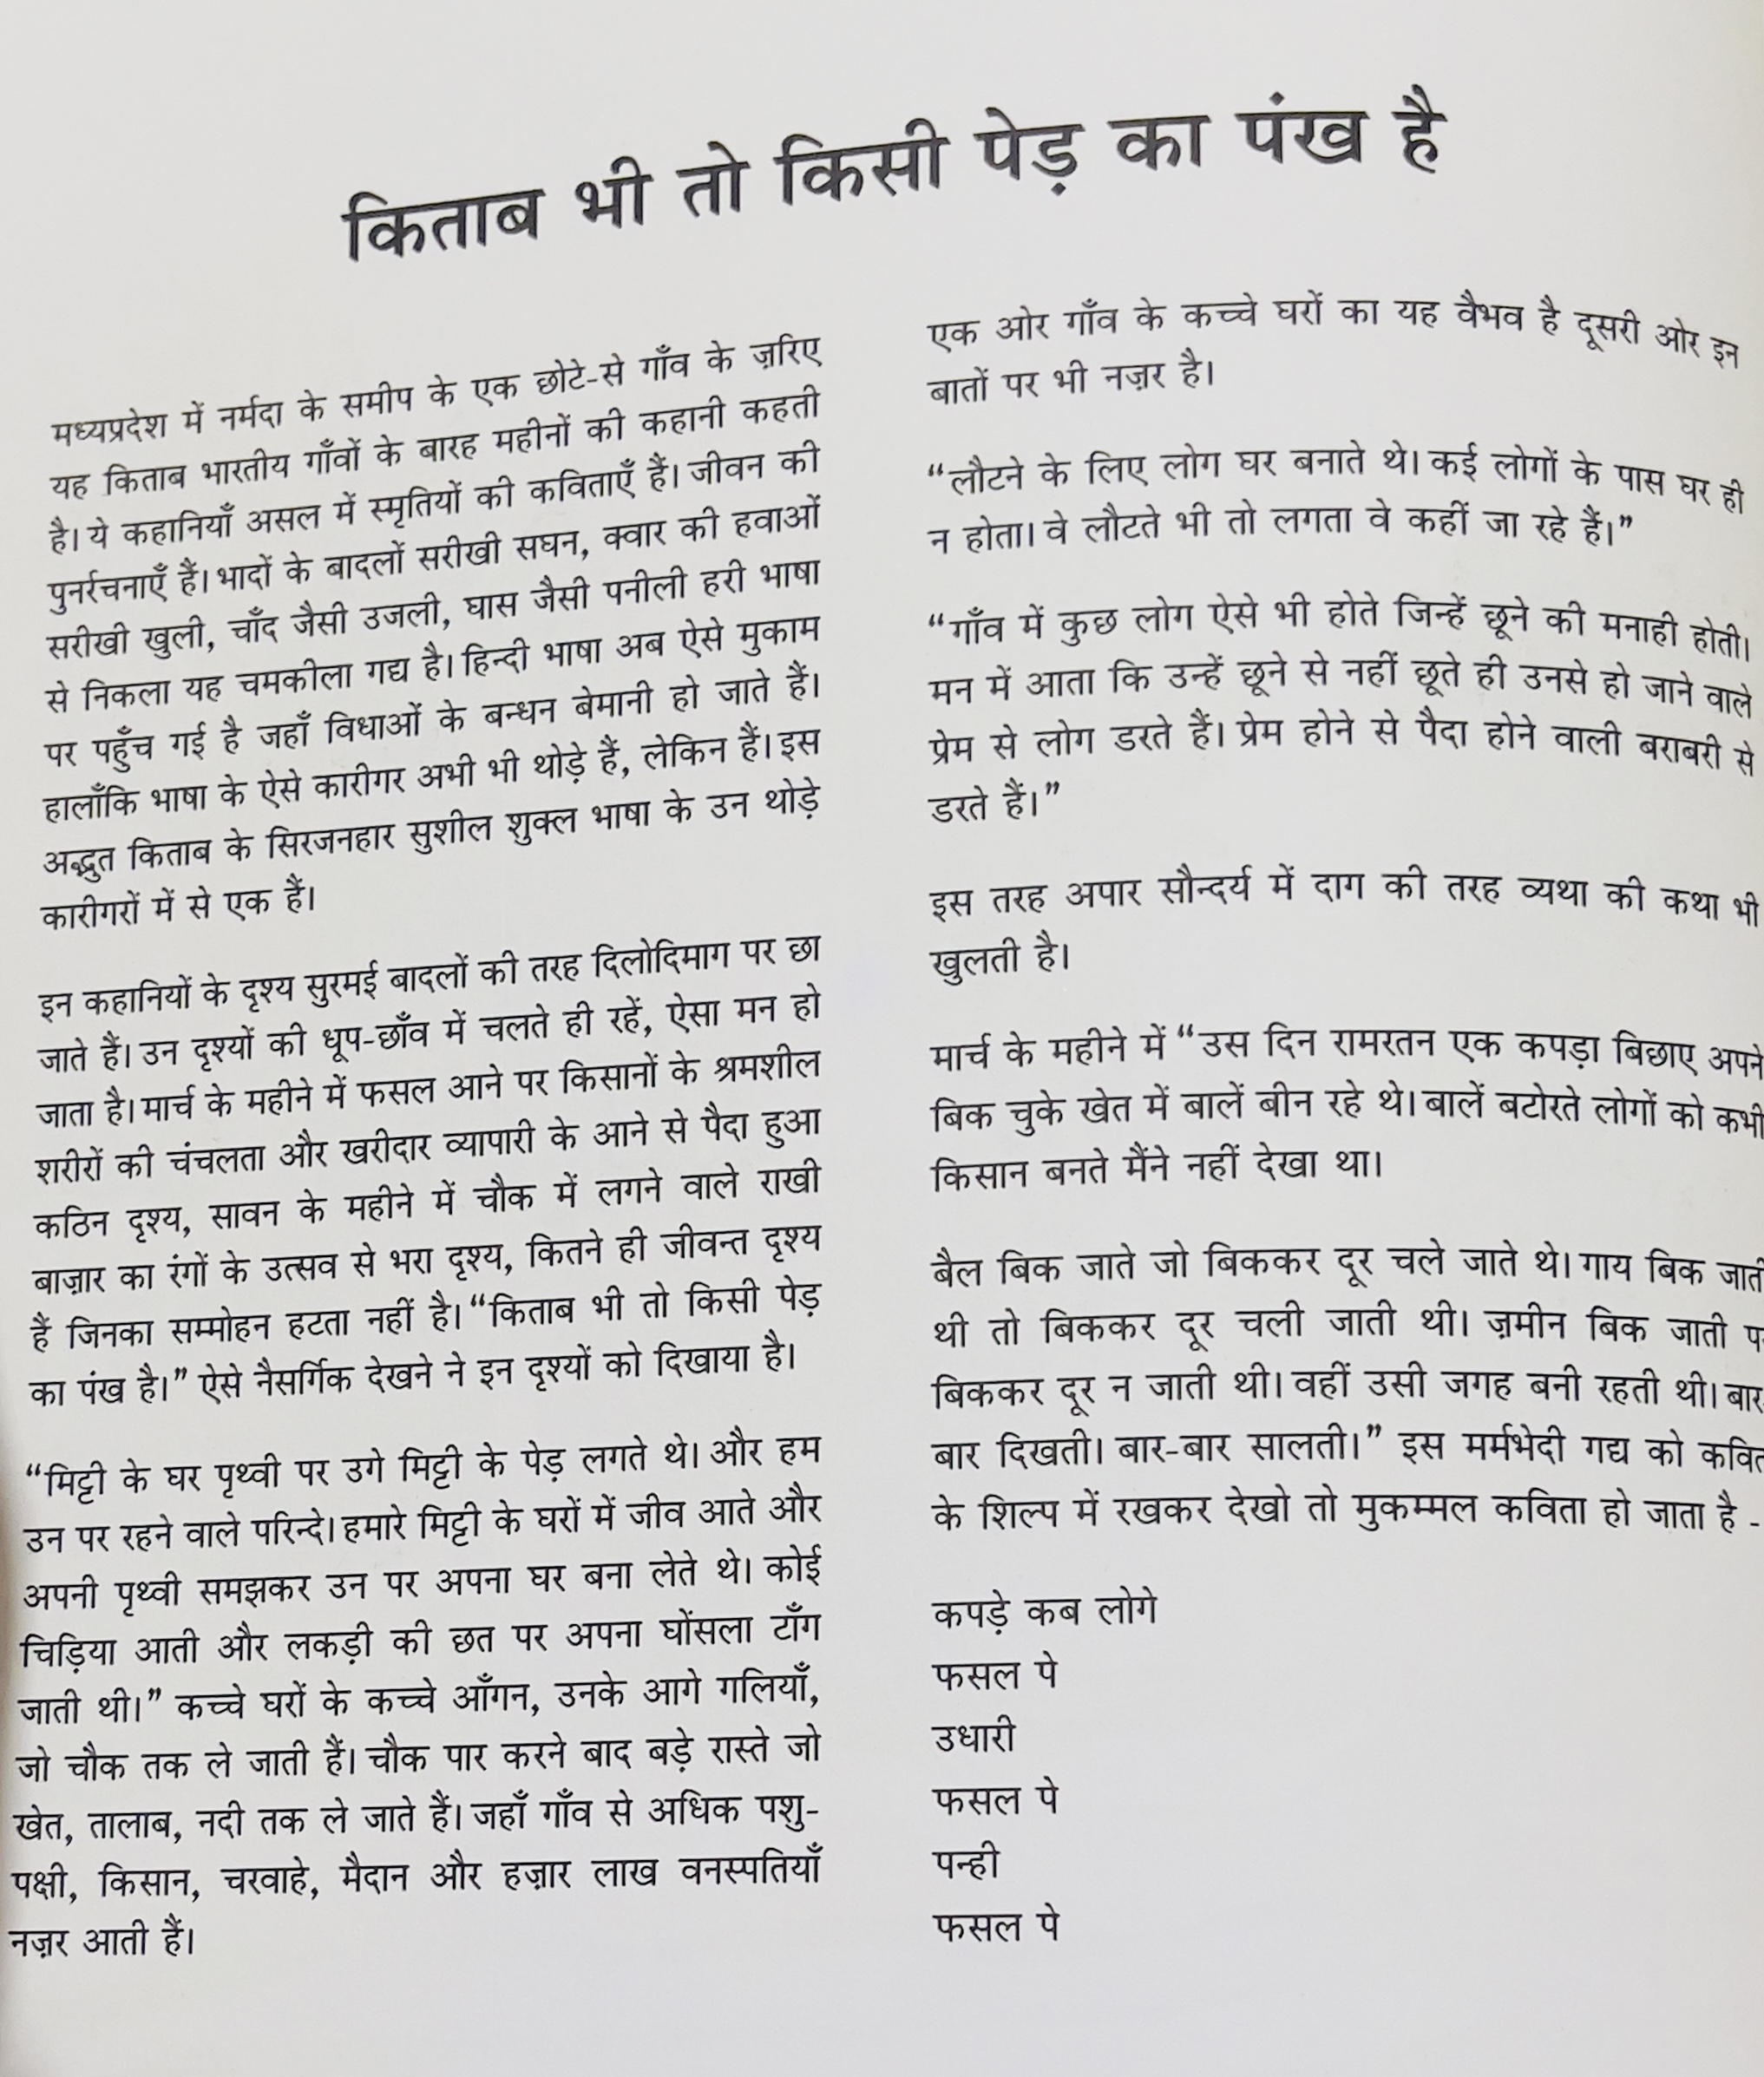 किताब भी तो किसी पेड़ का पंख है
मध्यप्रदेश में नर्मदा के समीप के एक छोटे-से गाँव के ज़रिए
यह किताब भारतीय गाँवों के बारह महीनों की कहानी कहती
है। ये कहानियाँ असल में स्मृतियों की कविताएँ हैं। जीवन की
पुनर्रचनाएँ हैं। भादों के बादलों सरीखी सघन, क्वार की हवाओं
सरीखी खुली, चाँद जैसी उजली, घास जैसी पनीली हरी भाषा
से निकला यह चमकीला गद्य है। हिन्दी भाषा अब ऐसे मुकाम
पर पहुँच गई है जहाँ विधाओं के बन्धन बेमानी हो जाते हैं।
हालाँकि भाषा के ऐसे कारीगर अभी भी थोड़े हैं, लेकिन हैं। इस
अद्भुत किताब के सिरजनहार सुशील शुक्ल भाषा के उन थोड़े
कारीगरों में से एक हैं।
इन कहानियों के दृश्य सुरमई बादलों की तरह दिलोदिमाग पर छा
जाते हैं। उन दृश्यों की धूप-छाँव में चलते ही रहें, ऐसा मन हो
जाता है। मार्च के महीने में फसल आने पर किसानों के श्रमशील
शरीरों की चंचलता और खरीदार व्यापारी के आने से पैदा हुआ
कठिन दृश्य, सावन के महीने में चौक में लगने वाले राखी
बाज़ार का रंगों के उत्सव से भरा दृश्य, कितने ही जीवन्त दृश्य
हैं जिनका सम्मोहन हटता नहीं है। “किताब भी तो किसी पेड़
का पंख है।” ऐसे नैसर्गिक देखने ने इन दृश्यों को दिखाया है।
“मिट्टी के घर पृथ्वी पर उगे मिट्टी के पेड़ लगते थे। और हम
उन पर रहने वाले परिन्दे। हमारे मिट्टी के घरों में जीव आते और
अपनी पृथ्वी समझकर उन पर अपना घर बना लेते थे। कोई
चिड़िया आती और लकड़ी की छत पर अपना घोंसला टाँग
जाती थी।” कच्चे घरों के कच्चे आँगन, उनके आगे गलियाँ,
जो चौक तक ले जाती हैं। चौक पार करने बाद बड़े रास्ते जो
खेत, तालाब, नदी तक ले जाते हैं। जहाँ गाँव से अधिक पशु-
पक्षी, किसान, चरवाहे, मैदान और हज़ार लाख वनस्पतियाँ
नज़र आती हैं।
एक ओर गाँव के कच्चे घरों का यह वैभव है दूसरी ओर इन
बातों पर भी नज़र है।
“लौटने के लिए लोग घर बनाते थे। कई लोगों के पास घर ही
न होता। वे लौटते भी तो लगता वे कहीं जा रहे हैं।”
“गाँव में कुछ लोग ऐसे भी होते जिन्हें छूने की मनाही होती।
मन में आता कि उन्हें छूने से नहीं छूते ही उनसे हो जाने वाले
प्रेम से लोग डरते हैं। प्रेम होने से पैदा होने वाली बराबरी से
डरते हैं।”
इस तरह अपार सौन्दर्य में दाग की तरह व्यथा की कथा भी
खुलती है।
मार्च के महीने में “उस दिन रामरतन एक कपड़ा बिछाए अपने
बिक चुके खेत में बालें बीन रहे थे। बालें बटोरते लोगों को कभी
किसान बनते मैंने नहीं देखा था।
बैल बिक जाते जो बिककर दूर चले जाते थे। गाय बिक जाती
थी तो बिककर दूर चली जाती थी। ज़मीन बिक जाती
बिककर दूर न जाती थी। वहीं उसी जगह बनी रहती थी। बार-
बार दिखती। बार-बार सालती।” इस मर्मभेदी गद्य को
के शिल्प में रखकर देखो तो मुकम्मल कविता हो जाता है -
कपड़े कब लोगे
फसल पे
उधारी
फसल पे
पन्ही
फसल पे